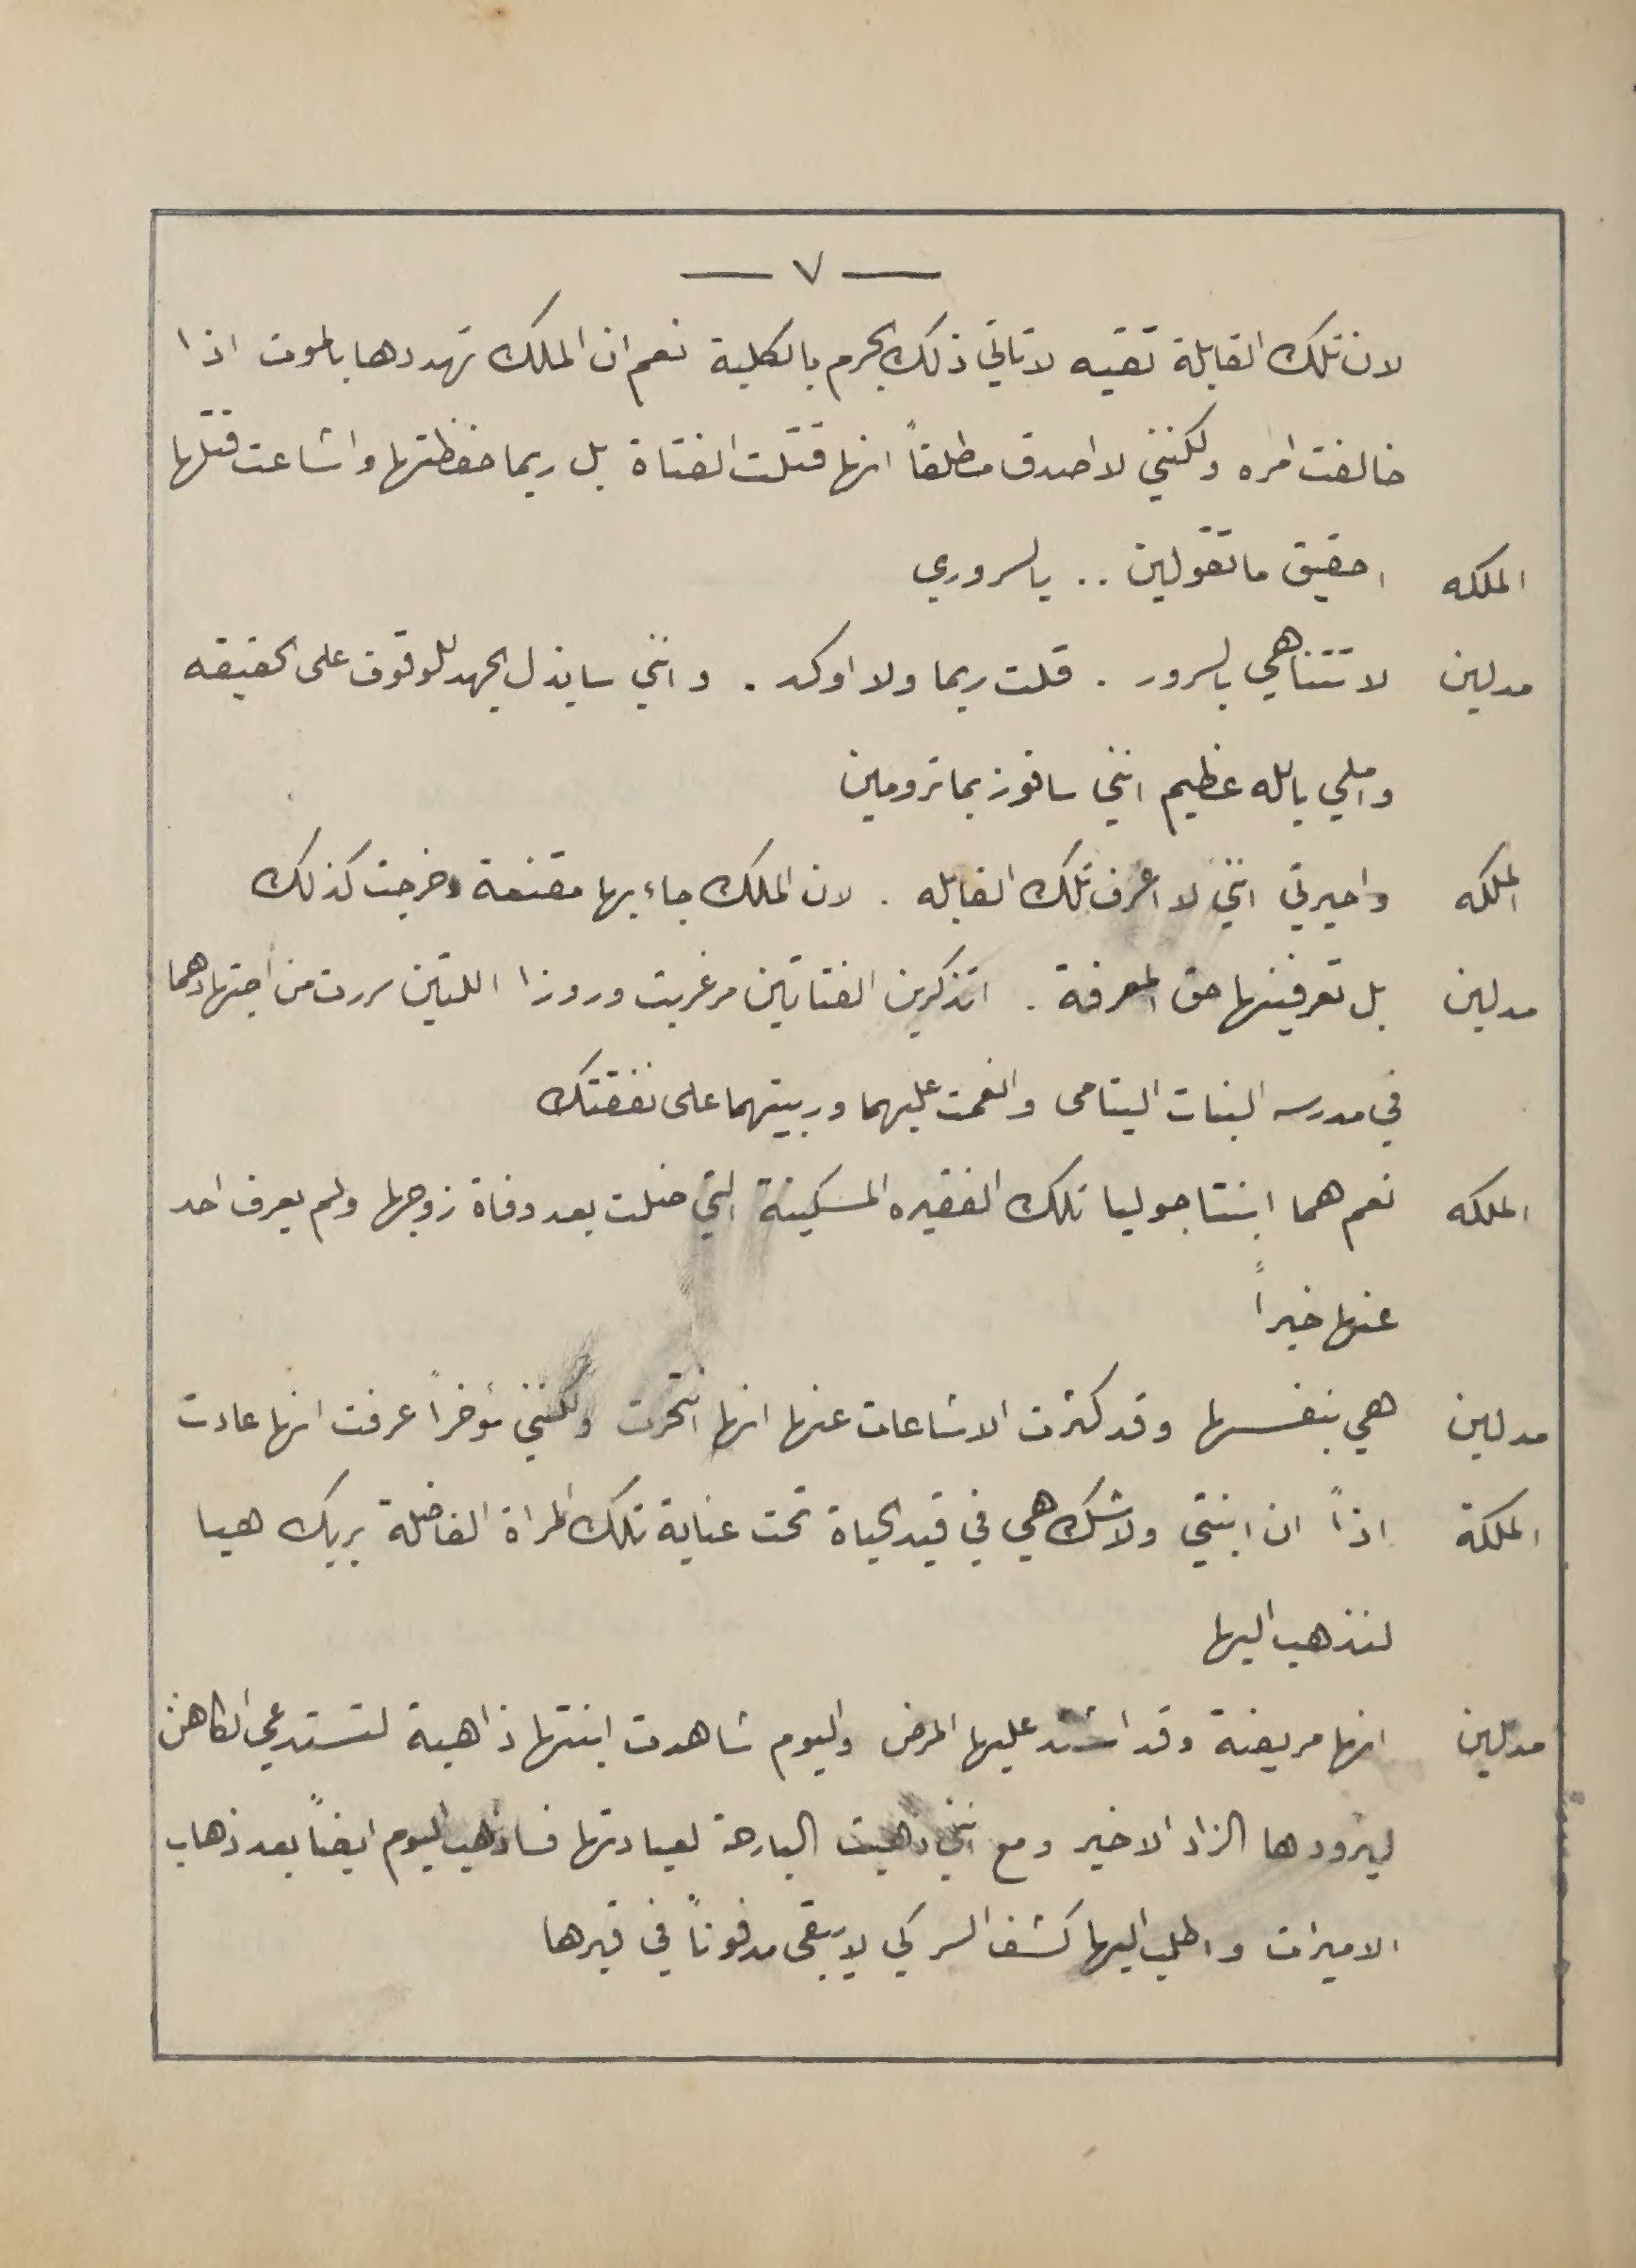 — ٧ —
لان تلك القابلة تقيه لا تاتي ذلك الجرم بالكلية نعم ان الملك تهددها بالموت اذا
خالفت امره ولكنني لا اصدق مطلقاً انها قتلت الفتاة بل ربما حفظتها واشاعت قتلها
الملكه احقيق ما تقولين .. يالسروري
مدلين لا تتناهي بالسرور . قلت ربما ولا اوكد . وانني سابذل الجهد للوقوف على الحقيقه
واملي بالله عظيم انني سافوز بما ترومين
الملكه واحيرتي انني لا اعرف تلك القابله . لان الملك جاء بها مقنعة وخرجت كذلك
مدلين بل تعرفينها حق المعرفة . اتذكرين الفتاتين مرغريت وروزا اللتين سررت من اجتهادهما
في مدرسه البنات اليتامى وانعمت عليهما وربيتهما على نفقتك
الملكه نعم هما ابنتا جوليا تلك الفقيره المسكينة التي ضلت بعد وفاة زوجها ولم يعرف احد
عنها خبراً
مدلين هي بنفسها وقد كثرت الاشاعات عنها انها انتحرت ولكنني مؤخراً عرفت انها عادت
الملكة اذاً ان ابنتي ولا شك هي في قيد الحياة تحت عناية تلك المراة الفاضلة بربك هيا
لنذهب اليها
مدلين انها مريضة وقد اشتد عليها المرض واليوم شاهدت ابنتها ذاهبة لتستدعي الكاهن
ليزودها الزاد الاخير ومع انني ذهبت البارحة لعيادتها فساذهب اليوم ايضاً بعد ذهاب
الاميرات واطلب اليها كشف السر كي لا يبقى مدفوناً في قبرها